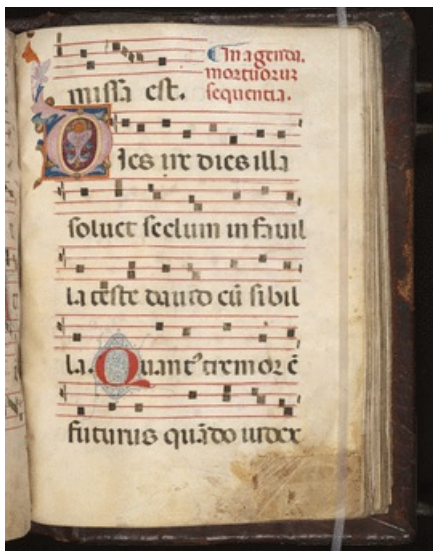 In agenda.
mortuorum
sequentia.
missa est.
Dies ire dies illa
soluet seclum in fauil
la teste dauid cũ sibil
la. Quantꝰ tremor ẽ
futurus quãdo iudex